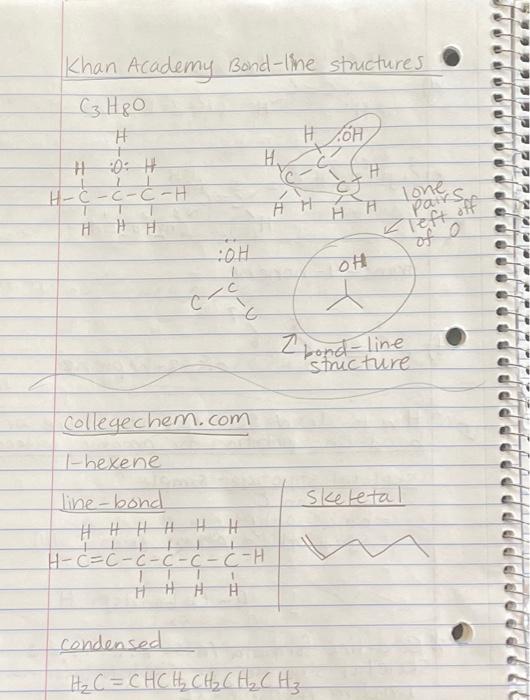 Khan Academy Bond-line structures
C3H8O
H
H :O: H
H-C-C-C-H
H H H
H :ÖH
H C H
C C
H H H H
lone
pairs
left off
of O
:ÖH
C
C C
OH
bond-line
structure
collegechem.com
1-hexene
line-bond
skeletal
H H H H H H
H-C=C-C-C-C-C-H
H H H H
condensed
H2C=CHCH2CH2CH2CH3